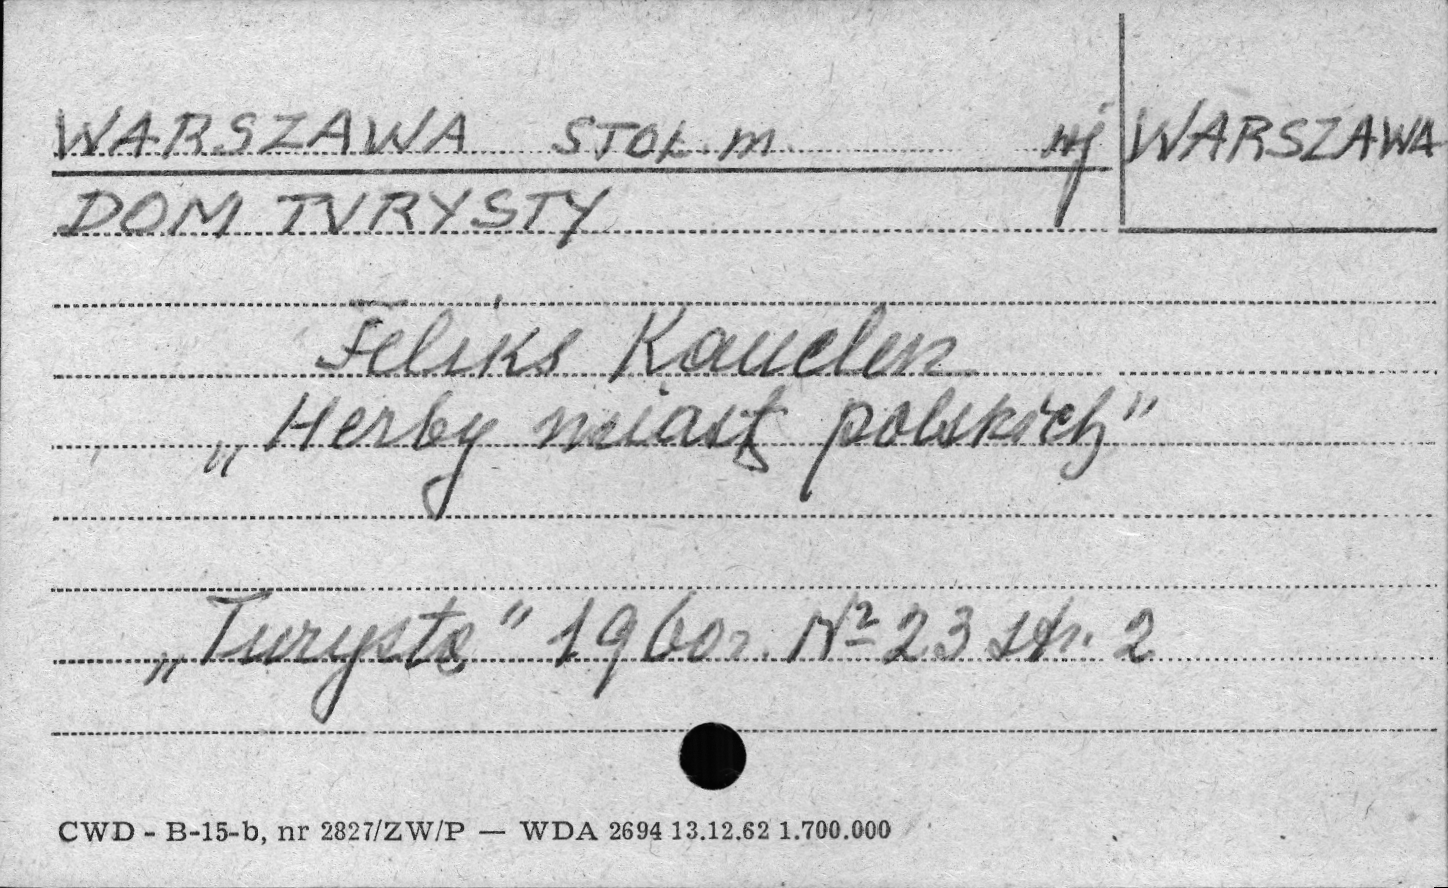 WARSZAWA STOŁ. M. wj WARSZAWA
DOM TURYSTY
Feliks Kauclen
„Herby miast polskich"
„Turysta" 1960r. № 23 str. 2
CWD - B-15-b, nr 2827/ZW/P — WDA 2694 13.12.62 1.700.000